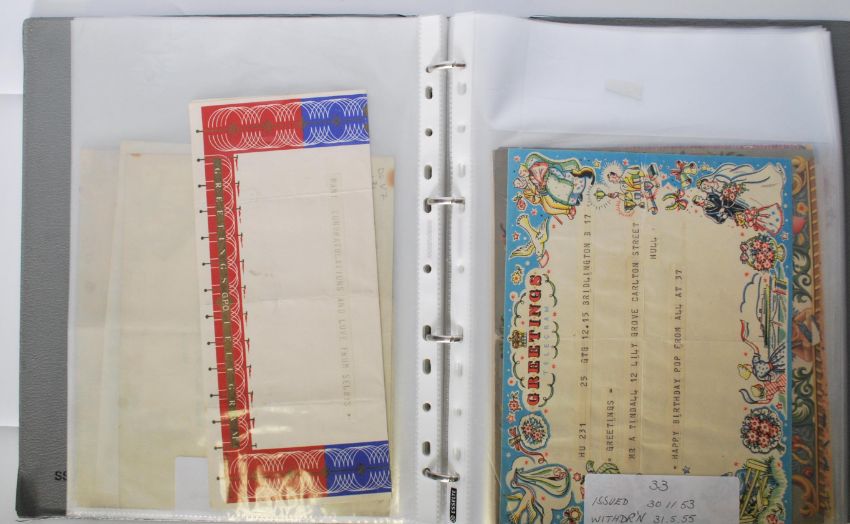 GREETINGS GPO TELEGRAM
MANY CONGRATULATIONS AND LOVE FROM SELBYS +
GREETINGS
TELEGRAM
HU 231 25 GTG 12.15 BRIDLINGTON B 17
GREETINGS =
MR A TINDALL 12 LILY GROVE CARLTON STREET
HULL
HAPPY BIRTHDAY POP FROM ALL AT 37
33
ISSUED 30 11 53
WITHDR'N 31.5.55
ESSELTE
SS